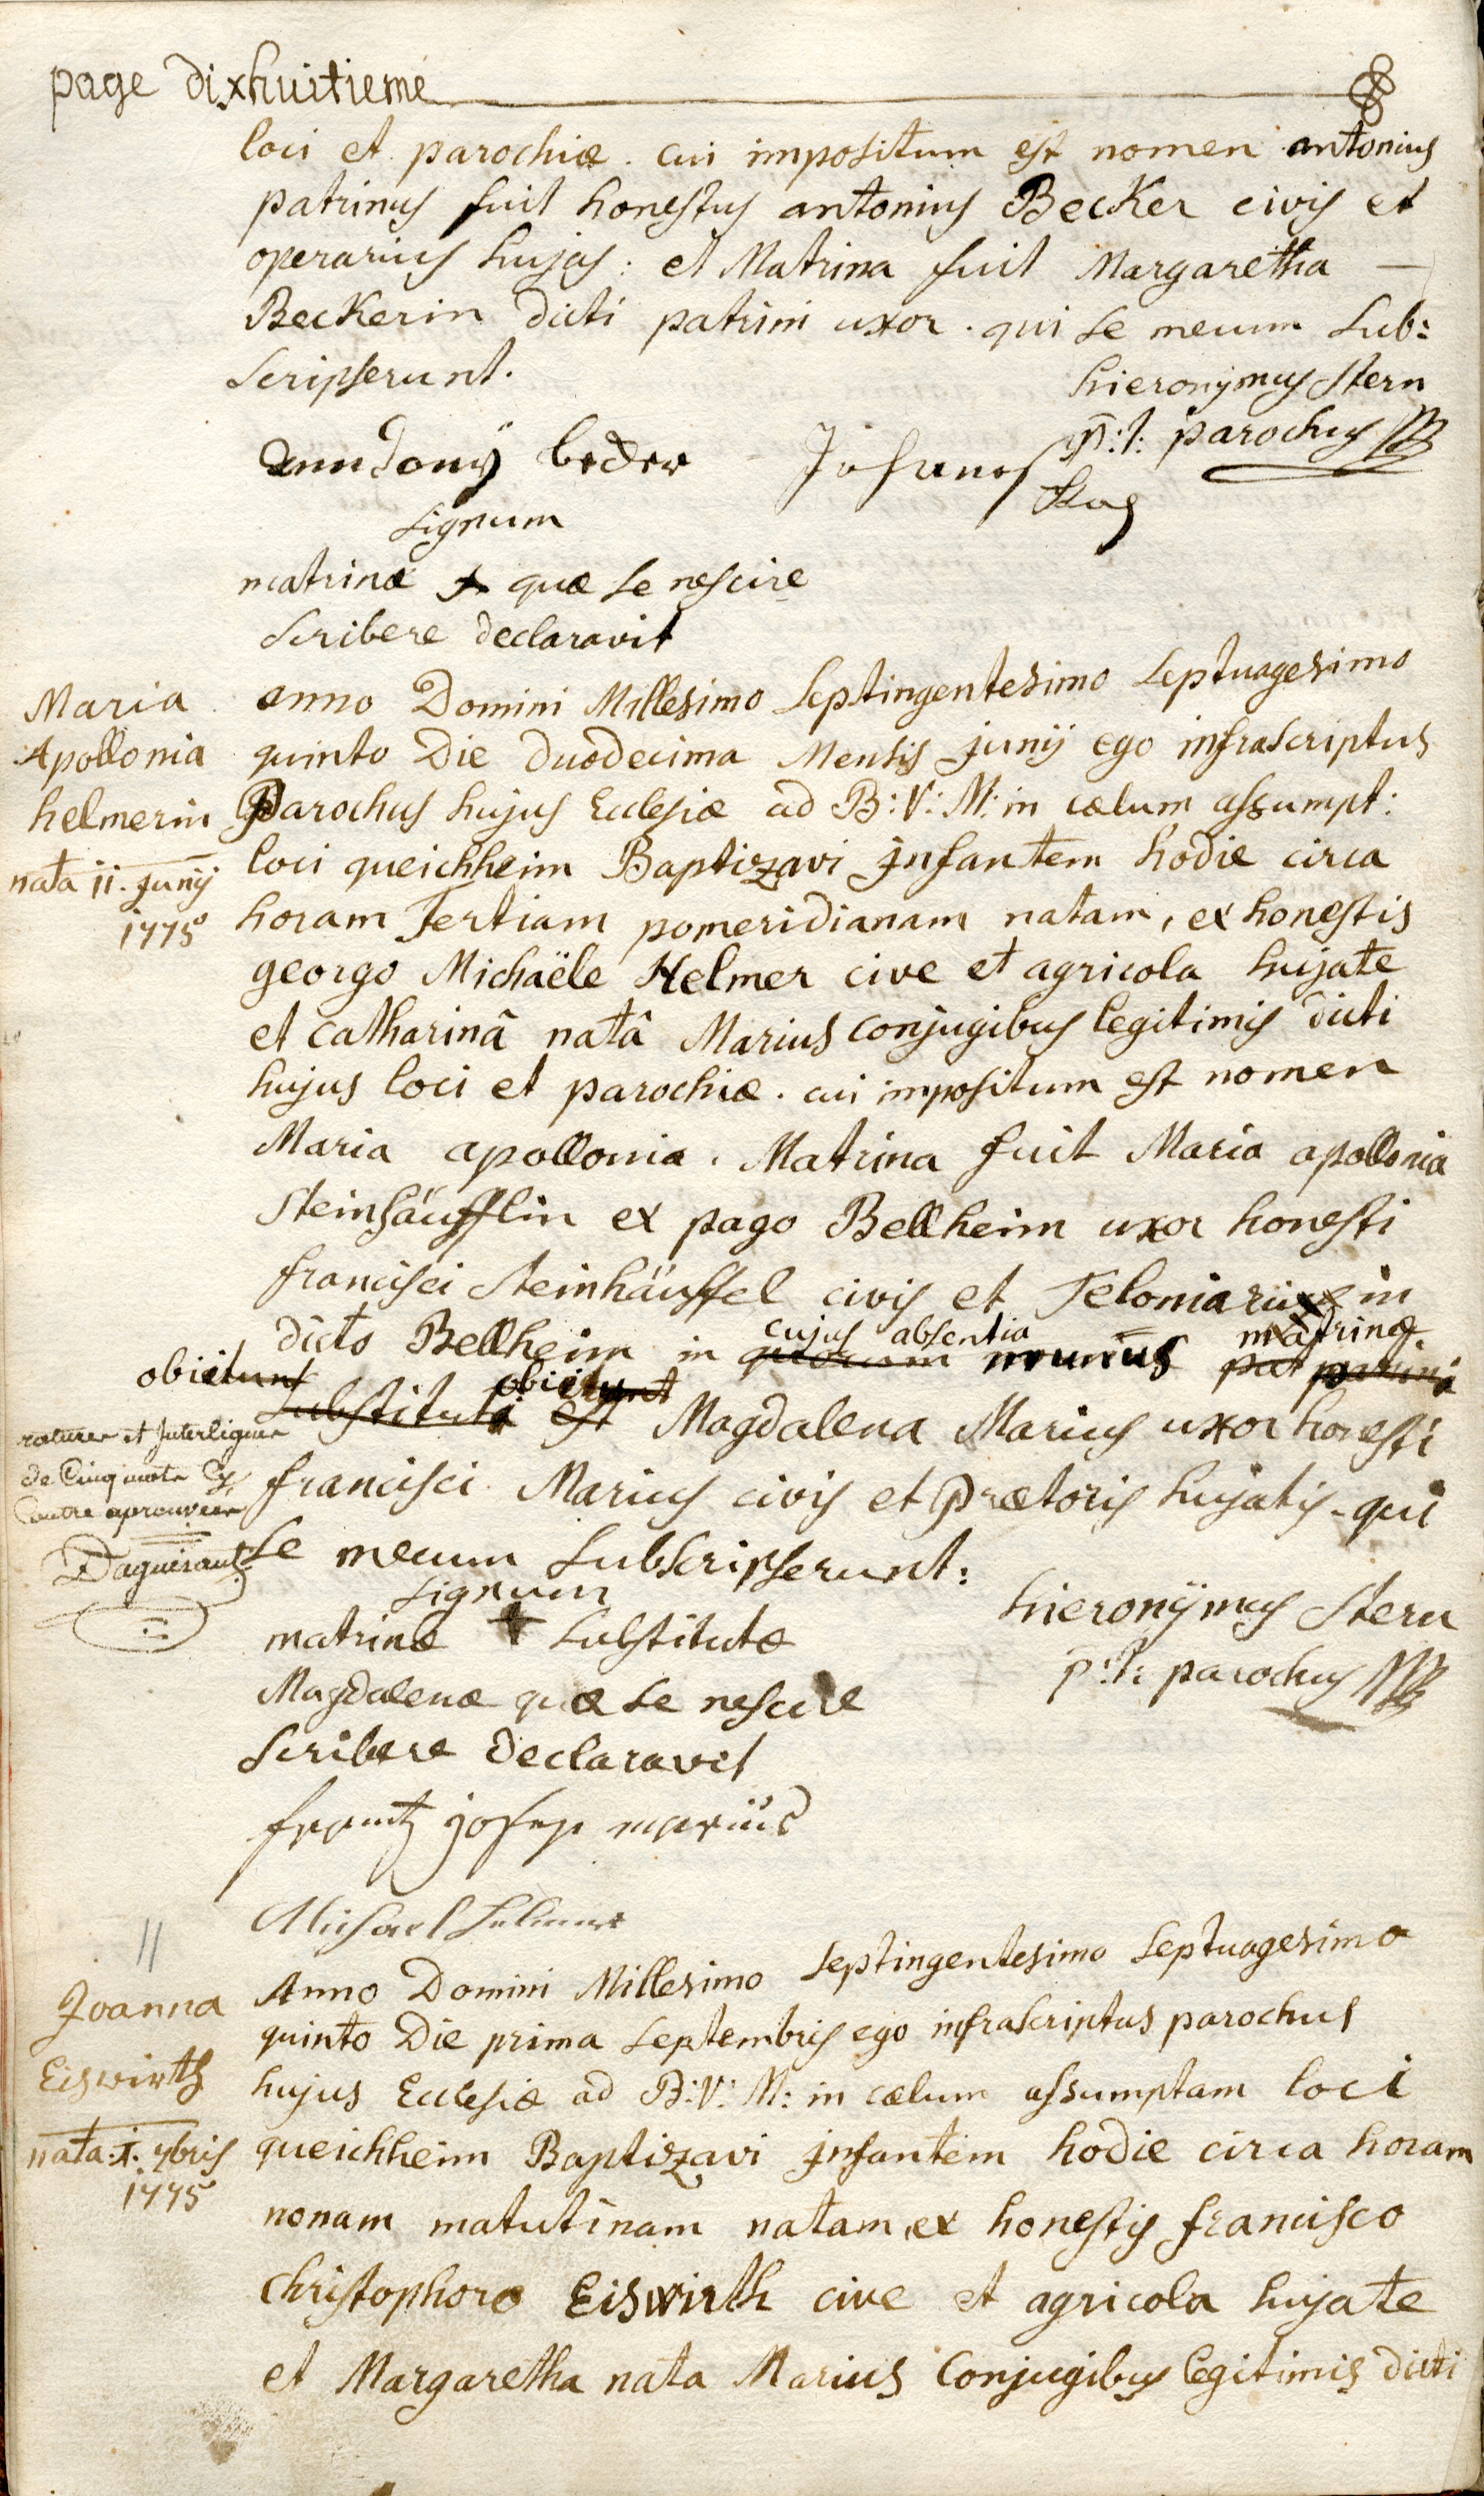 page dixhuitieme
loci et parochiæ. cui impositum est nomen antonius
patrinus fuit honestus antonius Becker civis et
operarius hujas: et Matrina fuit Margaretha —
Beckerin dicti patrini uxor. qui se mecum sub:
scripserunt.
hieronymus Stern
p:t: parochus
anndony beder
Johanes
signum
matrinæ + quæ se nescire
scribere declaravit
Maria
Apollonia
helmerin
nata 11. junij
1775
anno Domini Millesimo septingentesimo septuagesimo
quinto Die duodecima Mensis junij ego infrascriptus
Parochus hujus Ecclesiæ ad B: V: M: in cælum assumpt:
loci queichheim Baptizavi jnfantem hodie circa
horam Tertiam pomeridianam natam, ex honestis
georgo Michaële Helmer cive et agricola hujate
et catharinâ natâ Marius conjugibus legitimis dicti
hujus loci et parochiæ. cui impositum est nomen
Maria apollonia. Matrina fuit Maria apollonia
Steinhäufflin ex pago Bellheim uxor honesti
francisci Steinhäuffel civis et Teloniarii in
dicto Bellheim in quorum cujus absentia munus pat matrinæ
obierunt substituta est obierunt Magdalena Marius uxor honesti
francisci Marius civis et prætoris hujatis. qui
se mecum subscripserunt:
rature et Interligne
de Cinq mots
Daguisant
signum
matrinæ + substitutæ
Magdalenæ quæ se nescire
scribere declaravit
hieronÿmus Stern
p:t: parochus
frantz josep mariüs
Michael helmer
11
Joanna
Eiswirth
nata: 1. 7bris
1775
Anno Domini Millesimo septingentesimo septuagesimo
quinto Die prima septembris ego infrascriptus parochus
hujus Ecclesiæ ad B: V: M: in cælum assumptam loci
queichheim Baptizavi jnfantem hodie circa horam
nonam matutinam natam, ex honestis francisco
christophoro Eiswirth cive et agricola hujate
et Margaretha nata Marius Conjugibus legitimis dicti